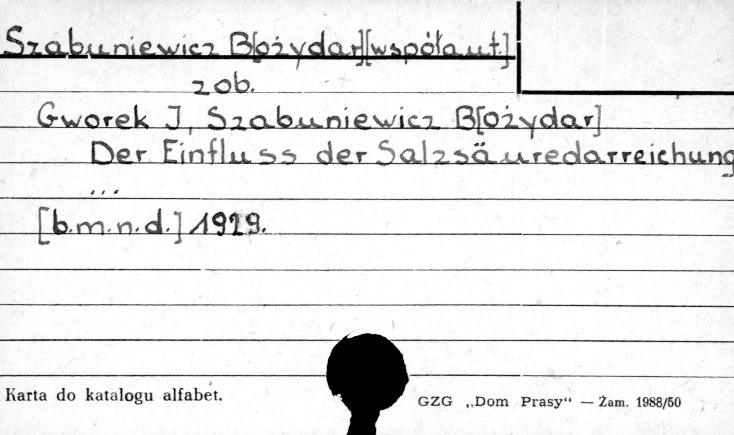 Szabuniewicz B[ożydar][współaut]
zob.
Gworek J, Szabuniewicz B[ożydar]
Der Einfluss der Salzsäuredarreichung
...
[b.m.n.d.] 1929.
Karta do katalogu alfabet.
GZG „Dom Prasy“ — Żam. 1988/50